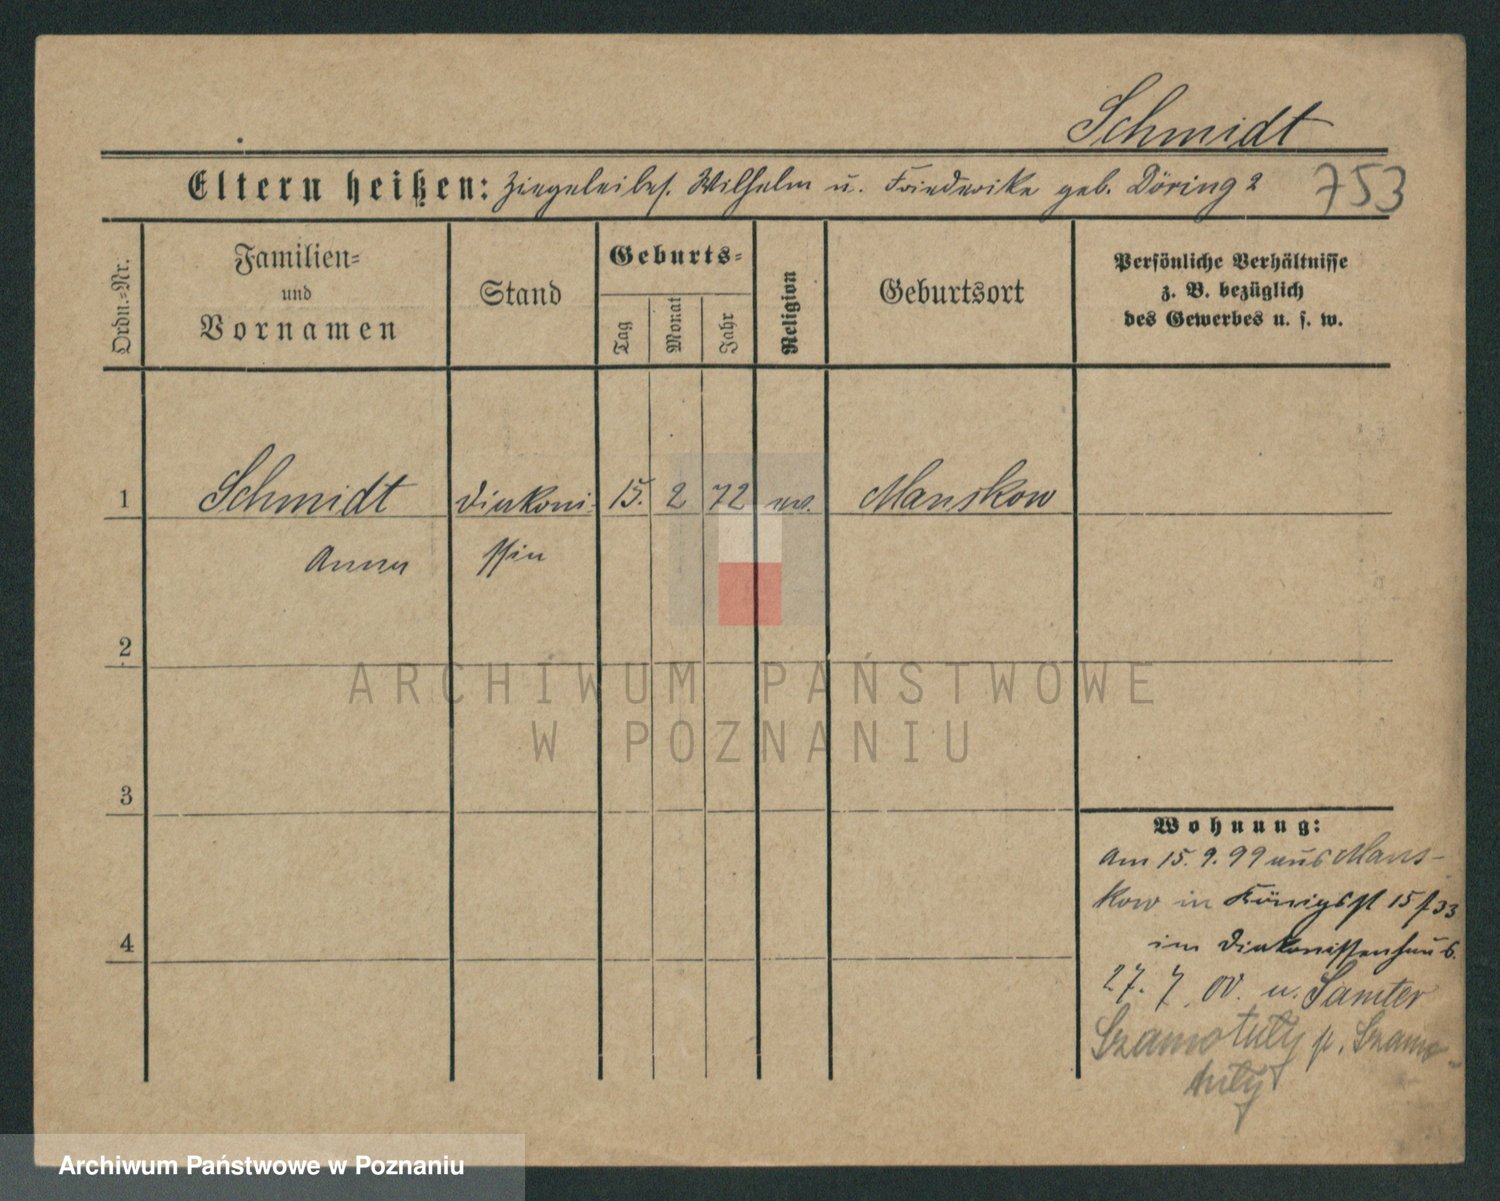 Schmidt
Eltern heißen: Ziegeleibes. Wilhelm u. Friederike geb. Döring 2 753
Ordn.-Nr.
Familien-
und
Vornamen
Stand
Geburts-
Tag
Monat
Jahr
Religion
Geburtsort
Persönliche Verhältnisse
z. B. bezüglich
des Gewerbes u. s. w.
1 Schmidt Diakoni- 15. 2 72 ev. Manskow
Anna ssin
2
ARCHIWUM PAŃSTWOWE
W POZNANIU
3
Wohnung:
Am 15.9.99 aus Mans-
kow in Königst 15/33
4
im Diakonissenhaus.
27. 7. 00. n. Samter
Szamotuły p. Szamo-
tuły
Archiwum Państwowe w Poznaniu